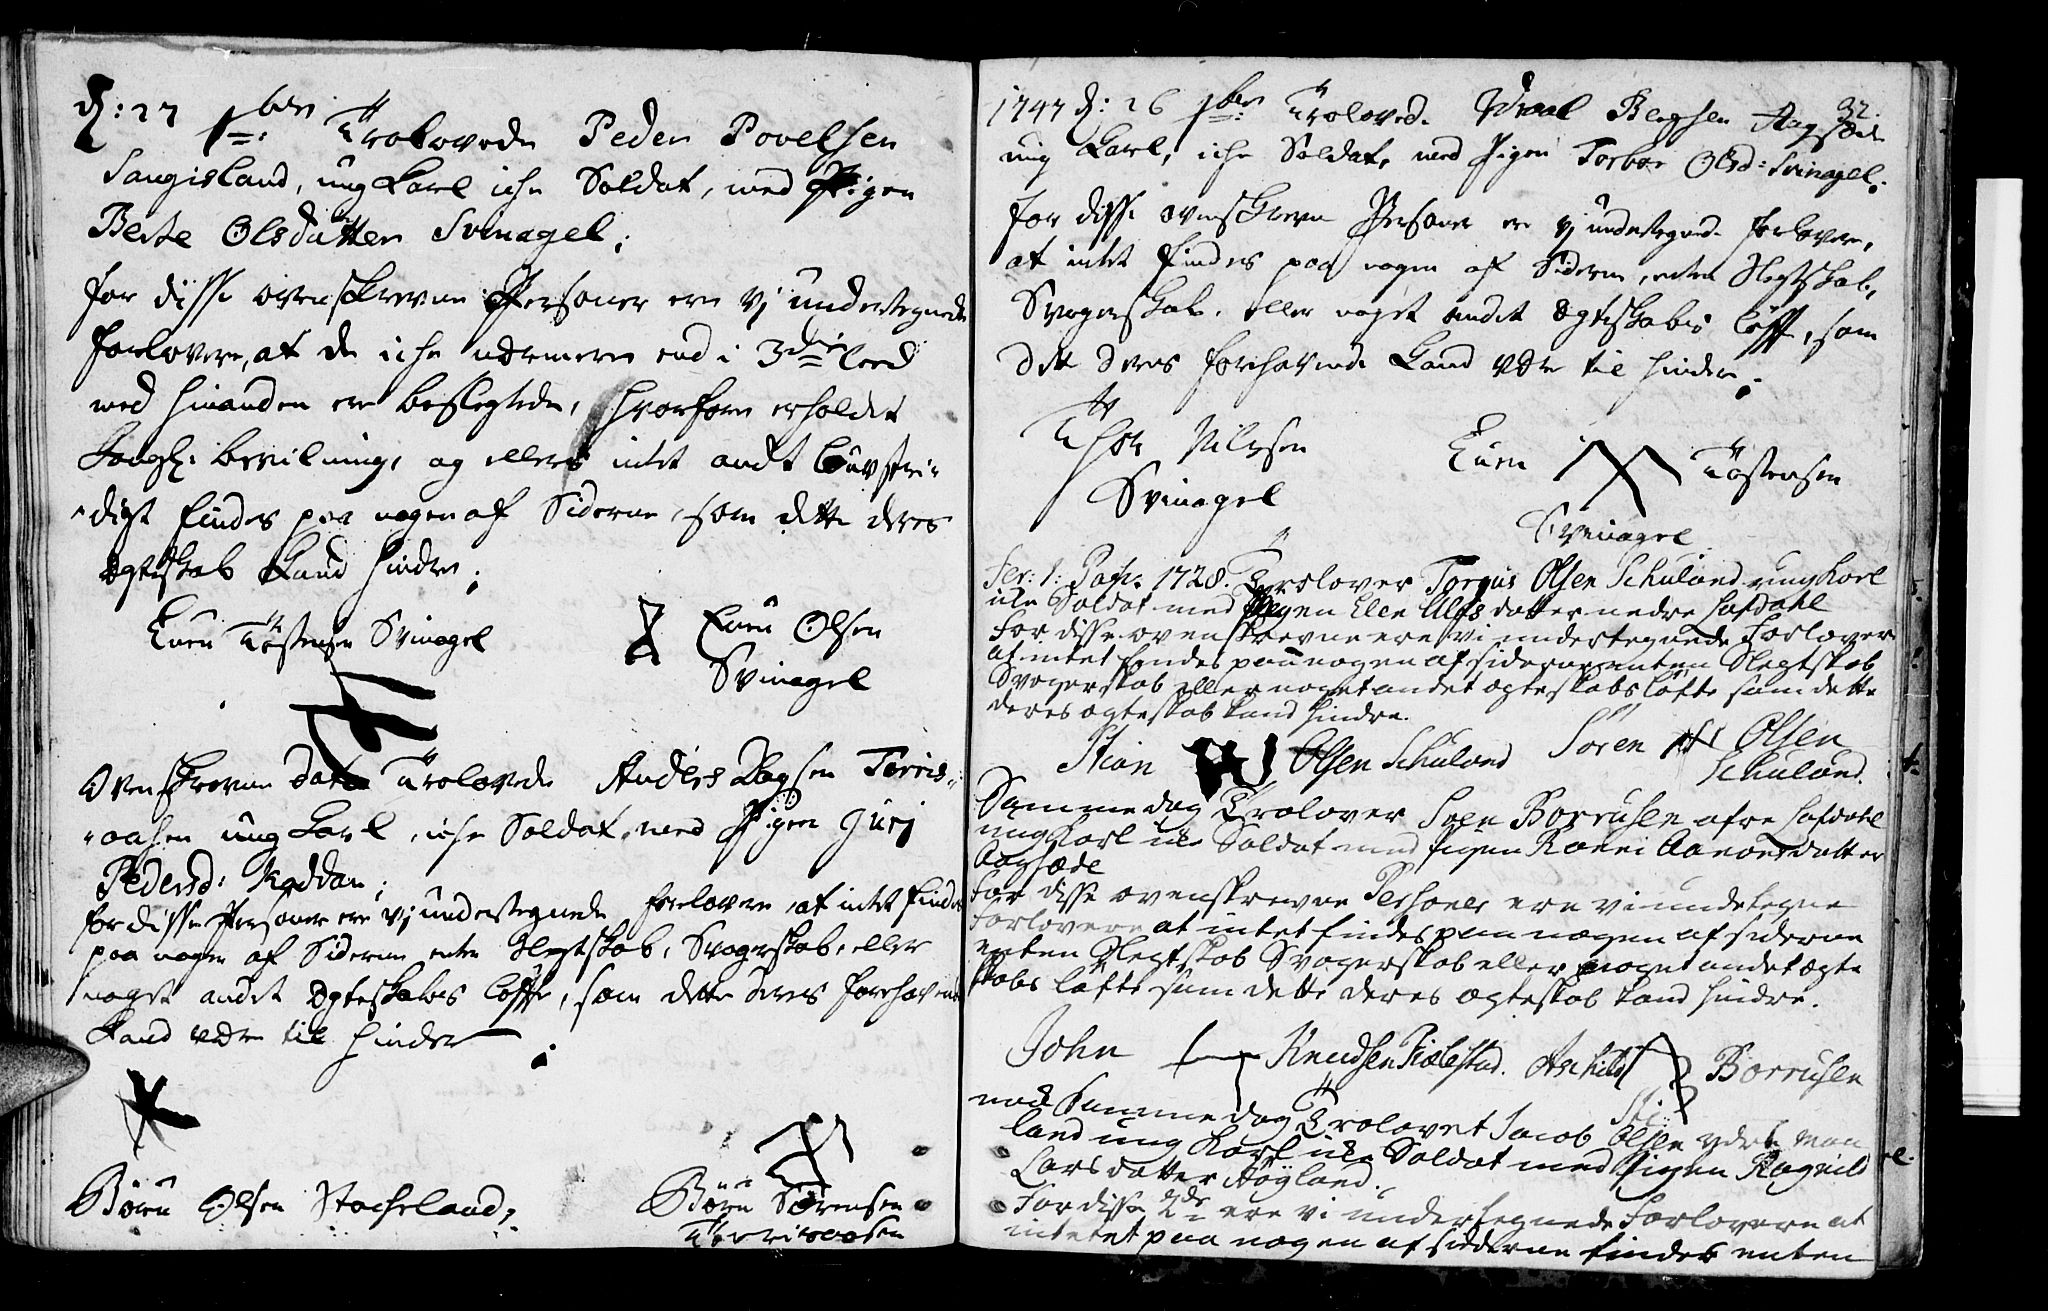 d: 27 1ber Trolovede Peder Povelsen
Langisland, ung Karl iche Soldat, med Pigen
Berte Olsdatter Svinagel;
for disse ovenskrevne Personer ere vj undertegnede
forlovere, at de iche nærmere end i 3die leed
med hinanden ere beslegtede, hvorfore erholdet
Kongl: bevilning, og ellers intet andt
digt findes paa nogen af Siderne, som dette deres
Ægteskab kand hindre;
Even Tostensen Svinagel
Even Olsen
Svinagel
Ovenskrevne Dato Trolovede Anders Dagsen Torris-
-aasen ung Karl, iche Soldat, med Pigen Gurj
Pedersd: Kaddan;
for disse Personer ere vj undertegnede forlovere, at intet findes
paa nogen af Siderne enten Slegtskab, Svogerskab, eller
noget andet Ægteskabes løffte, som dette deres forehavende
kand være til hinder;
Børu Olsen Stocheland;
Børu Sørensen
Torrisaasen
32.
1747 d: 26 1ber Trolovede Dagsen Aagsæde
ung Karl, iche Soldat, med Pigen Torbor Olsd: Svinagel;
for disse ovenskrevne Personer ere vj undertegnede forlovere,
at intet findes paa nogen af Siderne, enten Slegtskab,
Svogerskab, eller noget andet Ægteskabes løffte, som
dette deres forehavende kand være til hinder;
Thor Nilssen
Svinagel
Even Tostensen
Svinagel
Fer: 1: Pasch. 1728. Trolover Torgus Olsen Schuland ung Karl
icke Soldat med Pigen Elen Ulfsdatter nedre Lofdahl
For disse ovenskrevne ere vi undertegnede Forlover
at intet findes paa nogen af siderne enten Slegtskab
Svogerskab eller noget andet ægteskabs løfte som dette
deres ægteskab kand hindre.
Stian Olsen Schuland Sören Olsen
Schuland.
Samme dag Trolover Soen Borrusen øfre Lofdahl
ung Karl icke Soldat med Pigen Ronni Aanonsdatter
Aagsæde
For disse ovenskrevne Personer ere vi undetegne
Forlovere at intet findes paa nogen af siderne
enten Slegtskab Svogerskab eller noget andet ægte
skabs løfte som dette deres ægteskab kand hindre.
John Knudsen Aschild Borrusen
nock samme dag Trolovet Jacob Olsen ydre
land ung Karl icke Soldat med Pigen Ragnild
Larsdatter Høyland.
For disse 2de ere vi undertegnede Forlovere at
intetet paa nogen af siderne findes enten